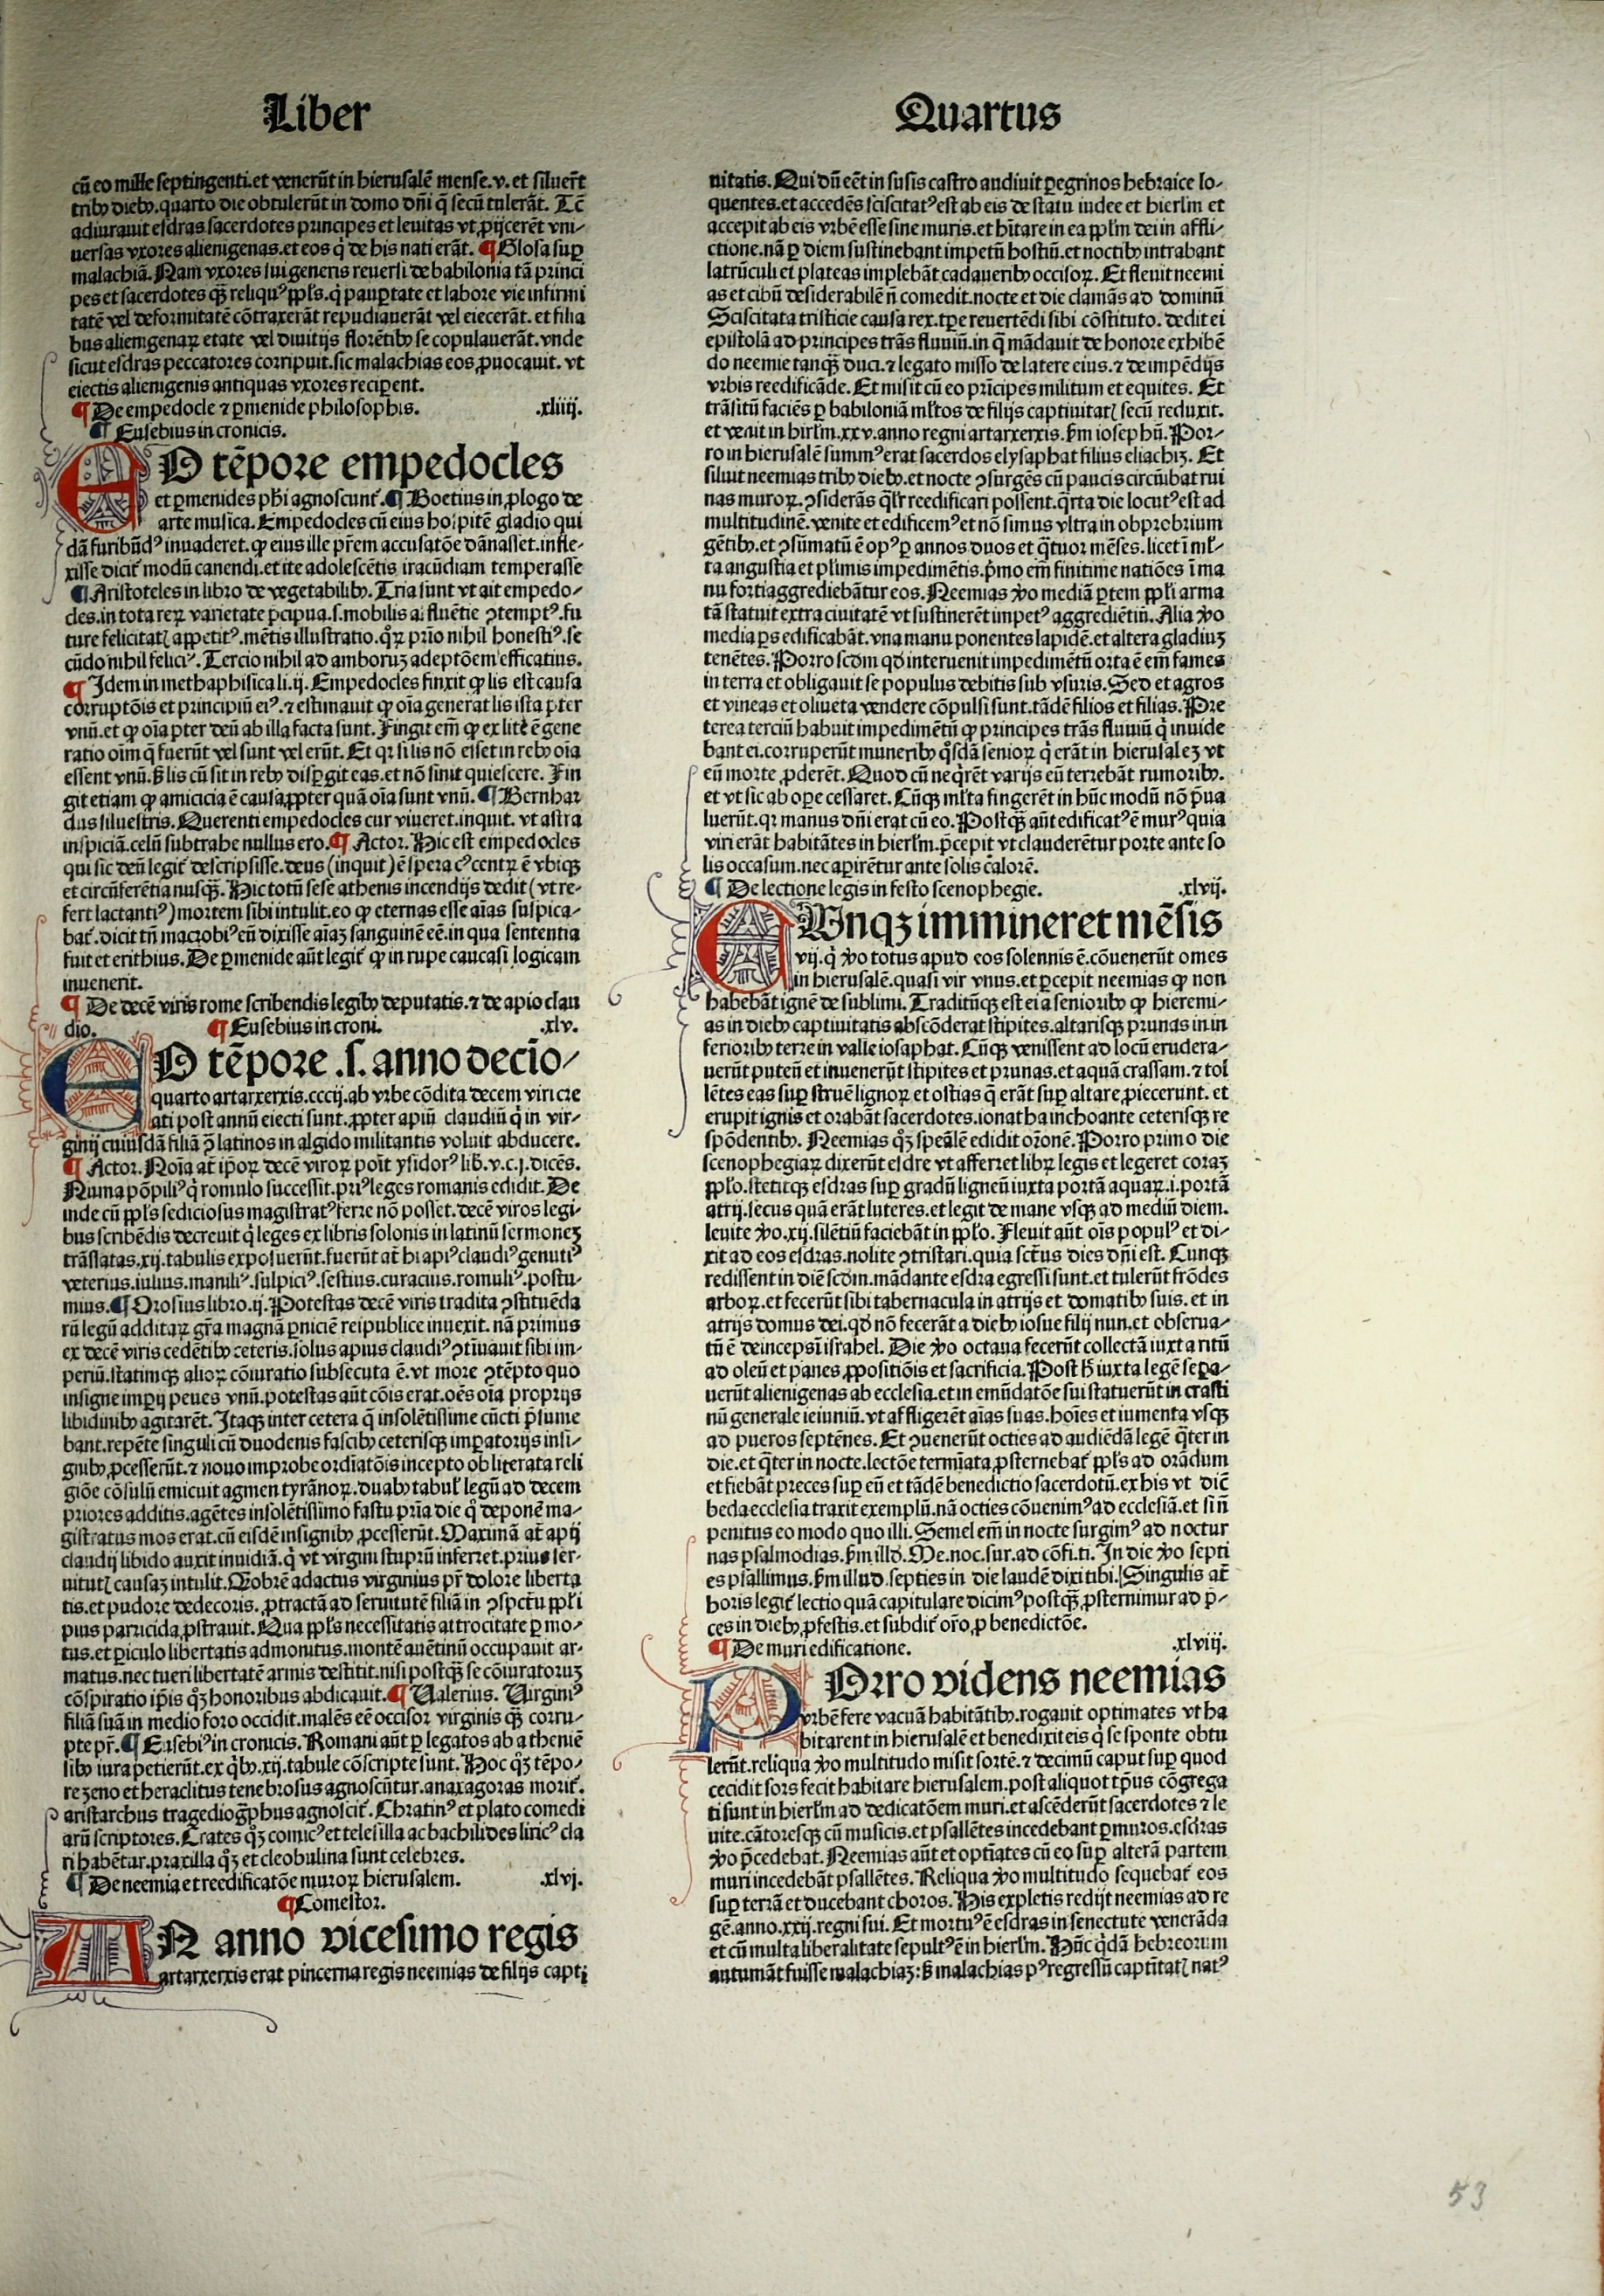 Liber
Quartus
cū eo mille septingenti. et venerūt in hierusalē mense. v. et siluerūt
tribꝰ diebꝰ. quarto die obtulerūt in domo dñi q̄ secū tulerāt. Tūc
adiurauit esdras sacerdotes principes et leuitas vt ꝓijcerēt vni-
uersas vxores alienigenas. et eos q̄ de his nati erāt. ¶ Glosa suꝑ
malachiā. Nam vxores sui generis reuersi de babilonia tā princi
pes et sacerdotes qꝫ reliquꝰ ppl̄s. q̄ pauꝑtate et labore vie infirmi
tatē vel deformitatē cōtraxerāt repudiauerāt vel eiecerāt. et filia
bus alienigenaꝝ etate vel diuitijs florētibꝰ se copulauerāt. vnde
sicut esdras peccatores corripuit. sic malachias eos ꝓuocauit. vt
eiectis alienigenis antiquas vxores reciꝑent.
¶ De empedocle ⁊ ꝑmenide philosophis. .xliiij.
¶ Eusebius in cronicis.
EO tēpore empedocles
et ꝑmenides ph̄i agnoscunt̄. ¶ Boetius in ꝓlogo de
arte musica. Empedocles cū eius hospitē gladio qui
dā furibūdꝰ inuaderet. ꝙ eius ille pr̄em accusatōe dānasset. infle-
xisse dicit̄ modū canendi. et ite adolescētis iracūdiam temperasse
¶ Aristoteles in libro de vegetabilibꝰ. Tria sunt vt ait empedo-
cles. in tota reꝝ varietate p̄cipua. s. mobilis affluētie ꝯtemptꝰ. fu
ture felicitatꝭ appetitꝰ. mētis illustratio. qͦꝝ prīo nihil honestiꝰ. se
cūdo nihil feliciꝰ. Tercio nihil ad amboruꝫ adeptōem efficatius.
¶ Idem in methaphisica li. ij. Empedocles finxit ꝙ lis est causa
corruptōis et principiū eiꝰ. ⁊ estimauit ꝙ oīa generat lis ista p̄ter
vnū. et ꝙ oīa p̄ter deū ab illa facta sunt. Fingit em̄ ꝙ ex lite ē gene
ratio oīm q̄ fuerūt vel sunt vel erūt. Et qꝛ si lis nō esset in rebꝰ oīa
essent vnū. s̄ lis cū sit in rebꝰ disꝑgit eas. et nō sinit quiescere. Fin
git etiam ꝙ amicicia ē causa ꝓpter quā oīa sunt vnū. ¶ Bernhar
dus siluestris. Querenti empedocles cur viueret. inquit. vt astra
inspiciā. celū subtrahe nullus ero. ¶ Actor. Hic est empedocles
qui sic deū legit̄ descripsisse. deus (inquit) ē spera cꝰ centꝝ ē vbiqꝫ
et circūferētia nusqꝫ. Hic totū sese athenis incendijs dedit (vt re-
fert lactantiꝰ) mortem sibi intulit. eo ꝙ eternas esse aīas suspica-
bat̄. dicit tn̄ macrobiꝰ eū dixisse aīaꝫ sanguinē eē. in qua sententia
fuit et erithius. De ꝑmenide aūt legit̄ ꝙ in rupe caucasi logicam
inuenerit.
¶ De decē viris rome scribendis legibꝰ deputatis. ⁊ de apio clau
dio. ¶ Eusebius in croni. .xlv.
EO tēpore .s. anno decīo-
quarto artarxerxis. cccij. ab vrbe cōdita decem viri cre
ati post annū eiecti sunt. ꝓpter apiū claudiū q̄ in vir-
ginij cuiusdā filiā ꝯ̄ latinos in algido militantis voluit abducere.
¶ Actor. Noīa at̄ ip̄oꝝ decē viroꝝ poīt ysidorꝰ lib̄. v. c. j. dicēs.
Numa pōpiliꝰ q̄ romulo successit. priꝰ leges romanis edidit. De
inde cū ppl̄s sediciosus magistratꝰ ferre nō posset. decē viros legi-
bus scribēdis decreuit q̄ leges ex libris solonis in latinū sermoneꝫ
trāslatas. xij. tabulis exposuerūt. fuerūt at̄ hi apiꝰ claudiꝰ genutiꝰ
veterius. iulius. maniliꝰ. sulpiciꝰ. sestius. curacius. romuliꝰ. postu-
mius. ¶ Orosius libro. ij. Potestas decē viris tradita ꝯstituēda
rū legū additaꝝ gr̄a magnā ꝑniciē reipublice inuexit. nā primus
ex decē viris cedētibꝰ ceteris. solus apius claudiꝰ ꝯtinuauit sibi im-
periū. statimqꝫ alioꝝ cōiuratio subsecuta ē. vt more ꝯtēpto quo
insigne imꝑij penes vnū. potestas aūt cōis erat. oēs oīa proprijs
libidinibꝰ agitarēt. Itaqꝫ inter cetera q̄ insolētissime cūcti p̄sume
bant. repēte singuli cū duodenis fascibꝰ ceterisqꝫ imꝑatorijs insi-
gnibꝰ ꝓcesserūt. ⁊ nouo improbe ordīatōis incepto obliterata reli
giōe cōsulū emicuit agmen tyrānoꝝ. duabꝰ tabul̄ legū ad decem
priores additis. agētes insolētissimo fastu pr̄ia die qͦ deponē ma-
gistratus mos erat. cū eisdē insignibꝰ ꝓcesserūt. Maximā at̄ apij
claudij libido auxit inuidiā. q̄ vt virgini stuprū inferret. prius ser-
uitutꝭ causaꝫ intulit. Qͦobrē adactus virginius pr̄ dolore liberta
tis. et pudore dedecoris. ꝓtractā ad seruitutē filiā in ꝯspctu ppl̄i
pius parricida ꝓstrauit. Qua ppl̄s necessitatis attrocitate ꝑmo-
tus. et ꝑiculo libertatis admonitus. montē auētinū occupauit ar-
matus. nec tueri libertatē armis destitit. nisi postqꝫ se cōiuratoruꝫ
cōspiratio ip̄is qͦꝫ honoribus abdicauit. ¶ Valerius. Virginiꝰ
filiā suā in medio foro occidit. malēs eē occisor virginis qꝫ corru-
pte pr̄. ¶ Eusebiꝰ in cronicis. Romani aūt ꝑ legatos ab atheniē
sibꝰ iura petierūt. ex q̄bꝰ. xij. tabule cōscripte sunt. Hoc qͦꝫ tēpo-
re zeno et heraclitus tenebrosus agnoscūtur. anaxagoras morit̄.
aristarchus tragediogꝑhus agnoscit̄. Chratinꝰ et plato comedi
arū scriptores. Crates qͦꝫ comicꝰ et telesilla ac bachilides liricꝰ cla
ri habētur. praxilla qͦꝫ et cleobulina sunt celebres.
¶ De neemia et reedificatōe muroꝝ hierusalem. .xlvj.
¶ Comestor.
IN anno vicesimo regis
artarxerxis erat pincerna regis neemias de filijs capti
uitatis. Qui dū eēt in susis castro audiuit ꝑegrinos hebraice lo-
quentes. et accedēs sciscitatꝰ est ab eis de statu iudee et hierl̄m et
accepit ab eis vrbē esse sine muris. et h̄itare in ea ppl̄m dei in affli-
ctione. nā ꝑ diem sustinebant impetū hostiū. et noctibꝰ intrabant
latrūculi et plateas implebāt cadaueribꝰ occisoꝝ. Et fleuit neemi
as et cibū desiderabilē n̄ comedit. nocte et die clamās ad dominū
Sciscitata tristicie causa rex. tp̄e reuertēdi sibi cōstituto. dedit ei
epistolā ad principes trās fluuiū. in q̄ mādauit de honore exhibē
do neemie tanqꝫ duci. ⁊ legato misso de latere eius. ⁊ de impēdijs
vrbis reedificāde. Et misit cū eo prīcipes militum et equites. Et
trāsitū faciēs ꝑ babiloniā ml̄tos de filijs captiuitatꝭ secū reduxit.
et venit in hirl̄m. xxv. anno regni artarxerxis. s̄m iosephū. Por-
ro in hierusalē summꝰ erat sacerdos elysaphat filius eliachiꝫ. Et
siluit neemias tribꝰ diebꝰ. et nocte ꝯsurgēs cū paucis circūibat rui
nas muroꝝ. ꝯsiderās ql̄r reedificari possent. q̄rta die locutꝰ est ad
multitudinē. venite et edificemꝰ et nō simus vltra in obprobrium
gētibꝰ. et ꝯsūmatū ē opꝰ ꝑ annos duos et q̄tuor mēses. licet ī ml̄-
ta angustia et pl̄imis impedimētis. p̄mo em̄ finitime natiōes ī ma
nu forti aggrediebātur eos. Neemias ꝟo mediā ꝑtem ppl̄i arma
tā statuit extra ciuitatē vt sustinerēt impetꝰ aggrediētiū. Alia ꝟo
media ꝑs edificabāt. vna manu ponentes lapidē. et altera gladiuꝫ
tenētes. Porro scd̄m qd̄ interuenit impedimētū orta ē em̄ fames
in terra et obligauit se populus debitis sub vsuris. Sed et agros
et vineas et oliueta vendere cōpulsi sunt. tādē filios et filias. Pre
terea terciū habuit impedimētū ꝙ principes trās fluuiū q̄ inuide
bant ei. corruperūt muneribꝰ qͦsdā senioꝝ q̄ erāt in hierusaleꝫ vt
eū morte ꝓderēt. Quod cū neq̄rēt varijs eū terrebāt rumoribꝰ.
et vt sic ab oꝑe cessaret. Cūqꝫ ml̄ta fingerēt in hūc modū nō p̄ua
luerūt. qꝛ manus dñi erat cū eo. Postqꝫ aūt edificatꝰ ē murꝰ quia
viri erāt habitātes in hierl̄m. p̄cepit vt clauderētur porte ante so
lis occasum. nec aꝑirētur ante solis calorē.
¶ De lectione legis in festo scenophegie. .xlvij.
CUnqꝫ immineret mēsis
vij. q̄ ꝟo totus apud eos solennis ē. cōuenerūt omēs
in hierusalē. quasi vir vnus. et ꝑcepit neemias ꝙ non
habebāt ignē de sublimi. Traditūqꝫ est ei a senioribꝰ ꝙ hieremi-
as in diebꝰ captiuitatis abscōderat stipites. altarisqꝫ prunas in in
ferioribꝰ terre in valle iosaphat. Cūqꝫ venissent ad locū erudera-
uerūt puteū et inuenerūt stipites et prunas. et aquā crassam. ⁊ tol
lētes eas suꝑ struē lignoꝝ et ostias q̄ erāt suꝑ altare ꝓiecerunt. et
erupit ignis et orabāt sacerdotes. ionatha inchoante ceterisqꝫ re
spōdentibꝰ. Neemias qͦꝫ speal̄ē edidit or̄onē. Porro primo die
scenophegiaꝝ dixerūt esdre vt afferret libꝝ legis et legeret coraꝫ
ppl̄o. stetitqꝫ esdras suꝑ gradū ligneū iuxta portā aquaꝝ. i. portā
atrij. secus quā erāt luteres. et legit de mane vsqꝫ ad mediū diem.
leuite ꝟo. xij. silētiū faciebāt in ppl̄o. Fleuit aūt ois populꝰ et di-
xit ad eos esdras. nolite ꝯtristari. quia sct̄us dies dñi est. Cunqꝫ
redissent in diē scd̄m. mādante esdra egressi sunt. et tulerūt frōdes
arboꝝ. et fecerūt sibi tabernacula in atrijs et domatibꝰ suis. et in
atrijs domus dei. qd̄ nō fecerāt a diebꝰ iosue filij nun. et obserua-
tū ē deinceps ī israhel. Die ꝟo octaua fecerūt collectā iuxta ritū
ad oleū et panes ꝓpositiōis et sacrificia. Post h̄ iuxta legē seꝑa-
uerūt alienigenas ab ecclesia. et in emūdatōe sui statuerūt in crasti
nū generale ieiuniū. vt affligerēt aīas suas. hoīes et iumenta vsqꝫ
ad pueros septēnes. Et ꝯuenerūt octies ad audiēdā legē q̄ter in
die. et q̄ter in nocte. lectōe termīata ꝓsternebat̄ ppl̄s ad orādum
et fiebāt preces suꝑ eū et tādē benedictio sacerdotū. ex his vt dic̄
beda ecclesia traxit exemplū. nā octies cōuenimꝰ ad ecclesiā. et si n̄
penitus eo modo quo illi. Semel em̄ in nocte surgimꝰ ad noctur
nas psalmodias. s̄m illd̄. Me. noc. sur. ad cōfi. ti. In die ꝟo septi
es psallimus. s̄m illud. septies in die laudē dixi tibi. Singulis at̄
horis legit̄ lectio quā capitulare dicimꝰ postqꝫ ꝓsternimur ad p̄-
ces in diebꝰ ꝓfestis. et subdit̄ or̄o ꝓ benedictōe.
¶ De muri edificatione. .xlviij.
POrro videns neemias
vrbē fere vacuā habitātibꝰ. rogauit optimates vt ha
bitarent in hierusalē et benedixit eis q̄ se sponte obtu
lerūt. reliqua ꝟo multitudo misit sortē. ⁊ decimū caput suꝑ quod
cecidit sors fecit habitare hierusalem. post aliquot tp̄us cōgrega
ti sunt in hierl̄m ad dedicatōem muri. et ascēderūt sacerdotes ⁊ le
uite. cātoresqꝫ cū musicis. et psallētes incedebant ꝑ muros. esdras
ꝟo p̄cedebat. Neemias aūt et optīates cū eo suꝑ alterā partem
muri incedebāt psallētes. Reliqua ꝟo multitudo sequebat̄ eos
suꝑ terrā et ducebant choros. His expletis redijt neemias ad re
gē. anno. xxij. regni sui. Et mortuꝰ ē esdras in senectute venerāda
et cū multa liberalitate sepultꝰ ē in hierl̄m. Hūc q̄dā hebreorum
autumāt fuisse malachiaꝫ: s̄ malachias pꝰ regressū captiuītatꝭ natꝰ
53